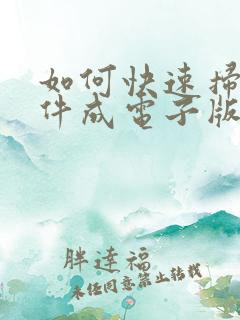 如何快速掃
件成電子版
胖達福
未经同意禁止转载